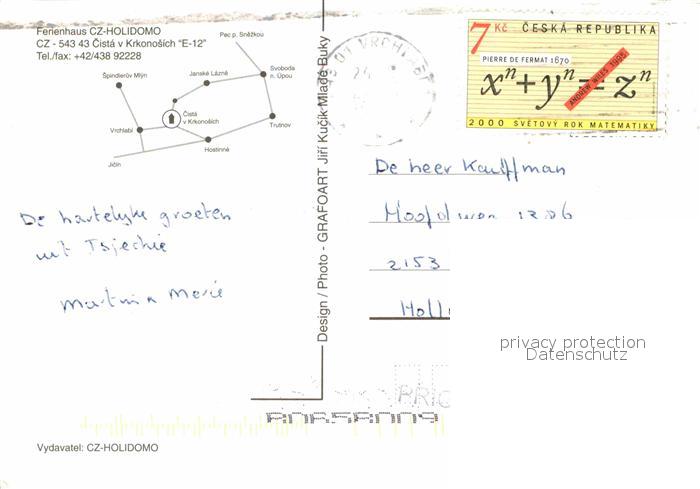 Ferienhaus CZ-HOLIDOMO
CZ - 543 43 Čistá v Krkonoších "E-12"
Tel./fax: +42/438 92228
Pec p. Sněžkou
Špindlerův Mlýn
Janské Lázně
Svoboda
n. Úpou
Čistá
v Krkonoších
Vrchlabí
Trutnov
Hostinné
Jičín
De hartelyke groeten
uit Tsjechie
Design / Photo - GRAFOART Jiří Kučík Mladé Buky
VRCHLABÍ
7 Kč ČESKÁ REPUBLIKA
PIERRE DE FERMAT 1670
xⁿ+yⁿ=zⁿ
ANDREW WILES 1995
2000 SVĚTOVÝ ROK MATEMATIKY
De heer Kauffman
2153
Holl
privacy protection
Datenschutz
PRIO
Vydavatel: CZ-HOLIDOMO